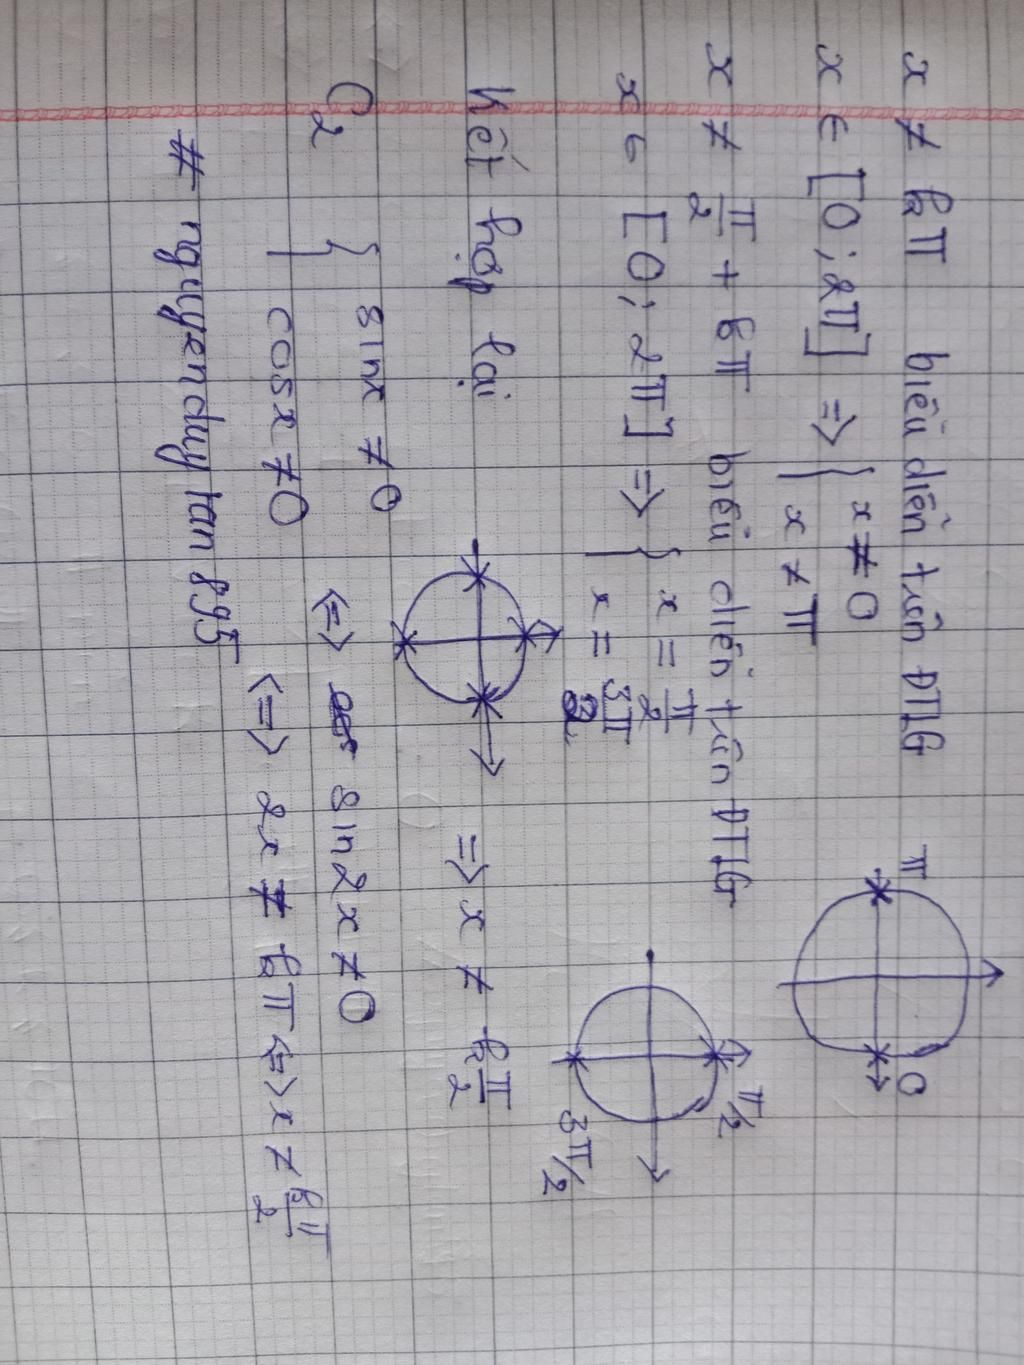 x ≠ kπ biểu diễn trên ĐTLG
π
0
x ∈ [0; 2π] => { x ≠ 0
x ≠ π
x ≠ π/2 + kπ biểu diễn trên ĐTLG
π/2
3π/2
x ∈ [0; 2π] => { x = π/2
x = 3π/2
Kết hợp lại => x ≠ kπ/2
C2 { sinx ≠ 0 <=> sin2x ≠ 0
cosx ≠ 0 <=> 2x ≠ kπ <=> x ≠ kπ/2
# nguyenduytan895